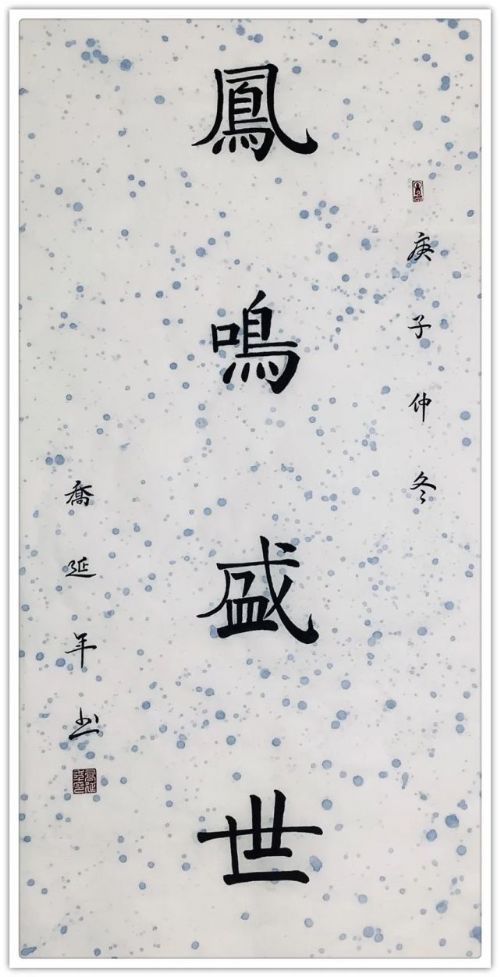 庚子仲冬
鳳鳴盛世
喬延年书